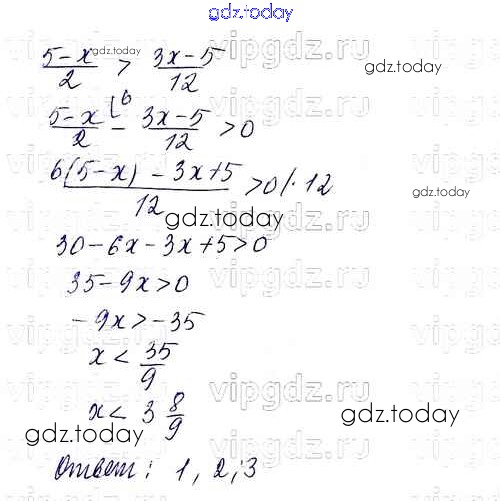 gdz.today
5-x/2 > 3x-5/12 gdz.today gdz.today
vipgdz.ru
5-x/2 ⌊6 - 3x-5/12 > 0
6(5-x) - 3x+5/12 > 0 |· 12 gdz.today
gdz.today
30-6x-3x+5>0
vipgdz.ru
35-9x>0
-9x>-35 vipgdz.ru
x < 35/9
vipgdz.ru
x < 3 8/9 gdz.today
gdz.today
Ответ: 1, 2; 3
vipgdz.ru